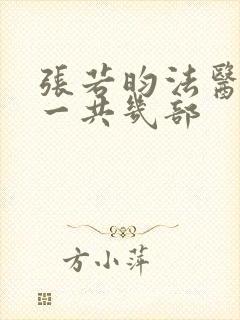 張若昀法醫
一共幾部
方小萍